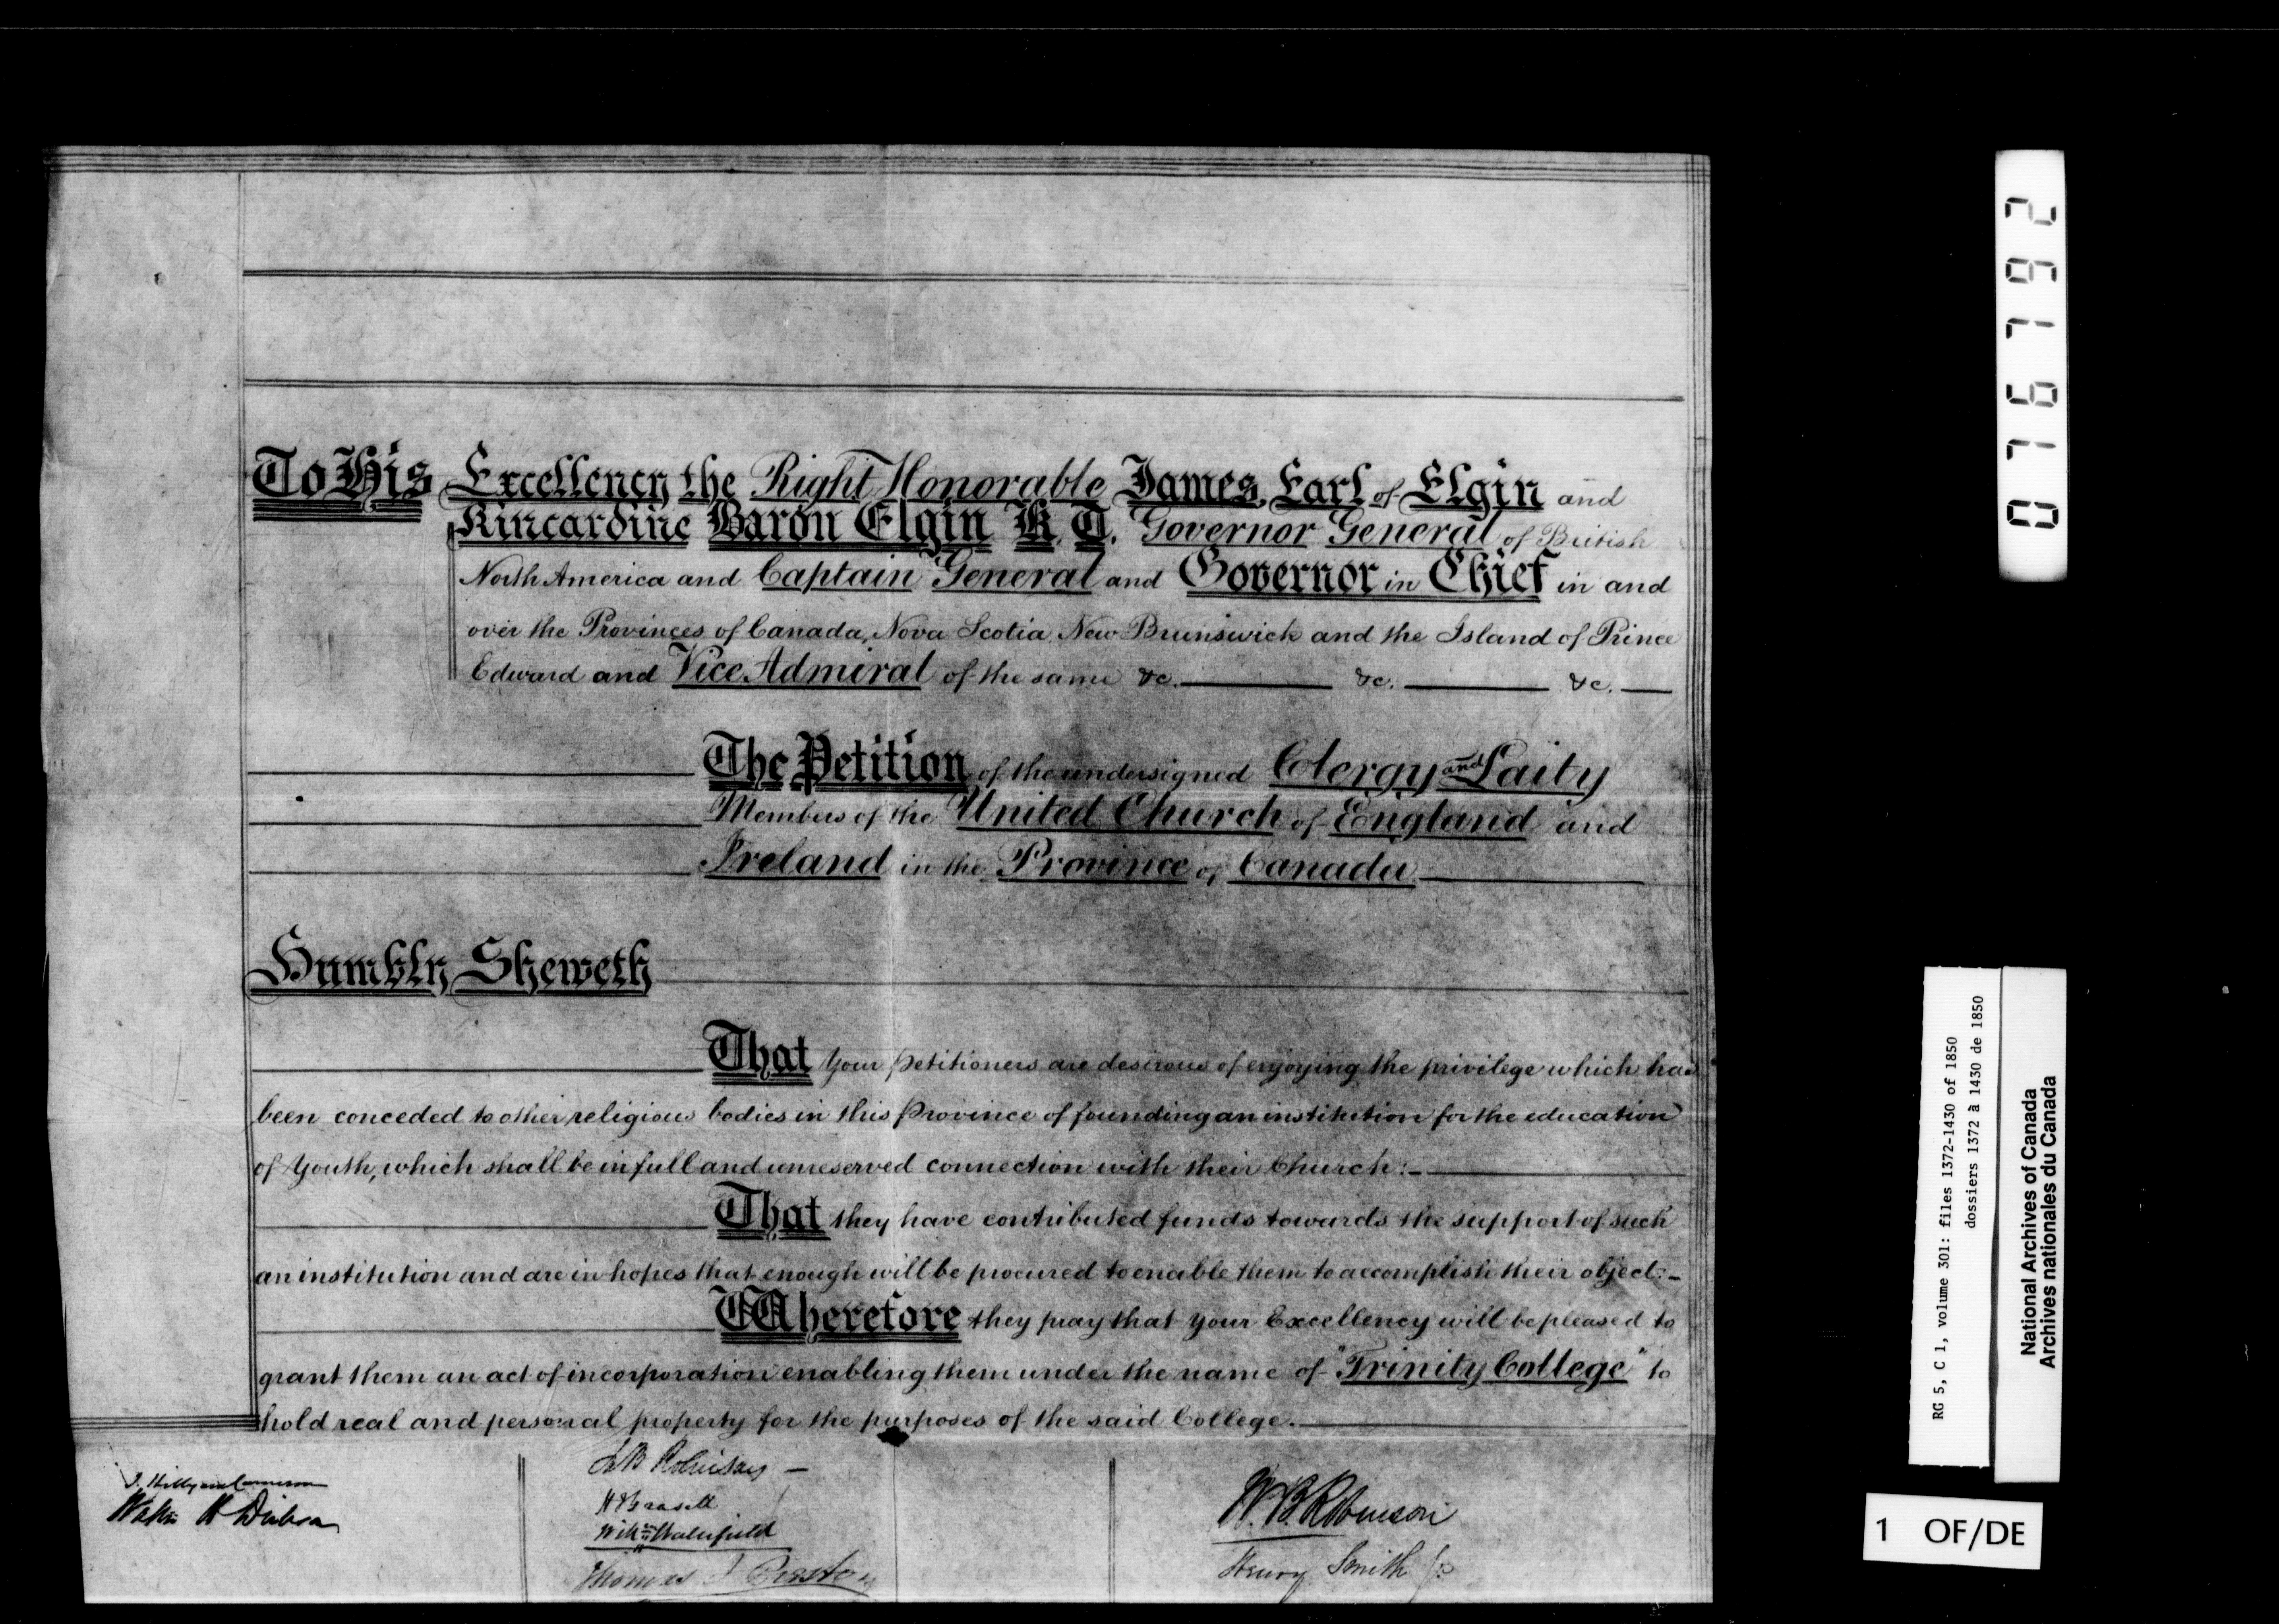 To His Excellency the Right Honorable James, Earl of Elgin and
Kincardine Baron Elgin K. T. Governor General of British
North America and Captain General and Governor in Chief in and
over the Provinces of Canada, Nova Scotia, New Brunswick and the Island of Prince
Edward and Vice Admiral of the same &c. &c. &c.
The Petition of the undersigned Clergy and Laity
Members of the United Church of England and
Ireland in the Province of Canada
Humbly Sheweth
That your petitioners are desirous of enjoying the privilege which has
been conceded to other religious bodies in this Province of founding an institution for the education
of Youth, which shall be in full and unreserved connection with their Church:-
That they have contributed funds towards the support of such
an institution and are in hopes that enough will be procured to enable them to accomplish their object:-
Wherefore they pray that your Excellency will be pleased to
grant them an act of incorporation enabling them under the name of "Trinity College" to
hold real and personal property for the purposes of the said College.
J. Hillyard Cameron
Walter H Dickson
Robinson
H Grasett
Wm Wakefield
Thomas
W. B. Robinson
Henry Smith Jr
076792
RG 5, C 1, volume 301: files 1372-1430 of 1850
dossiers 1372 à 1430 de 1850
National Archives of Canada
Archives nationales du Canada
1 OF/DE